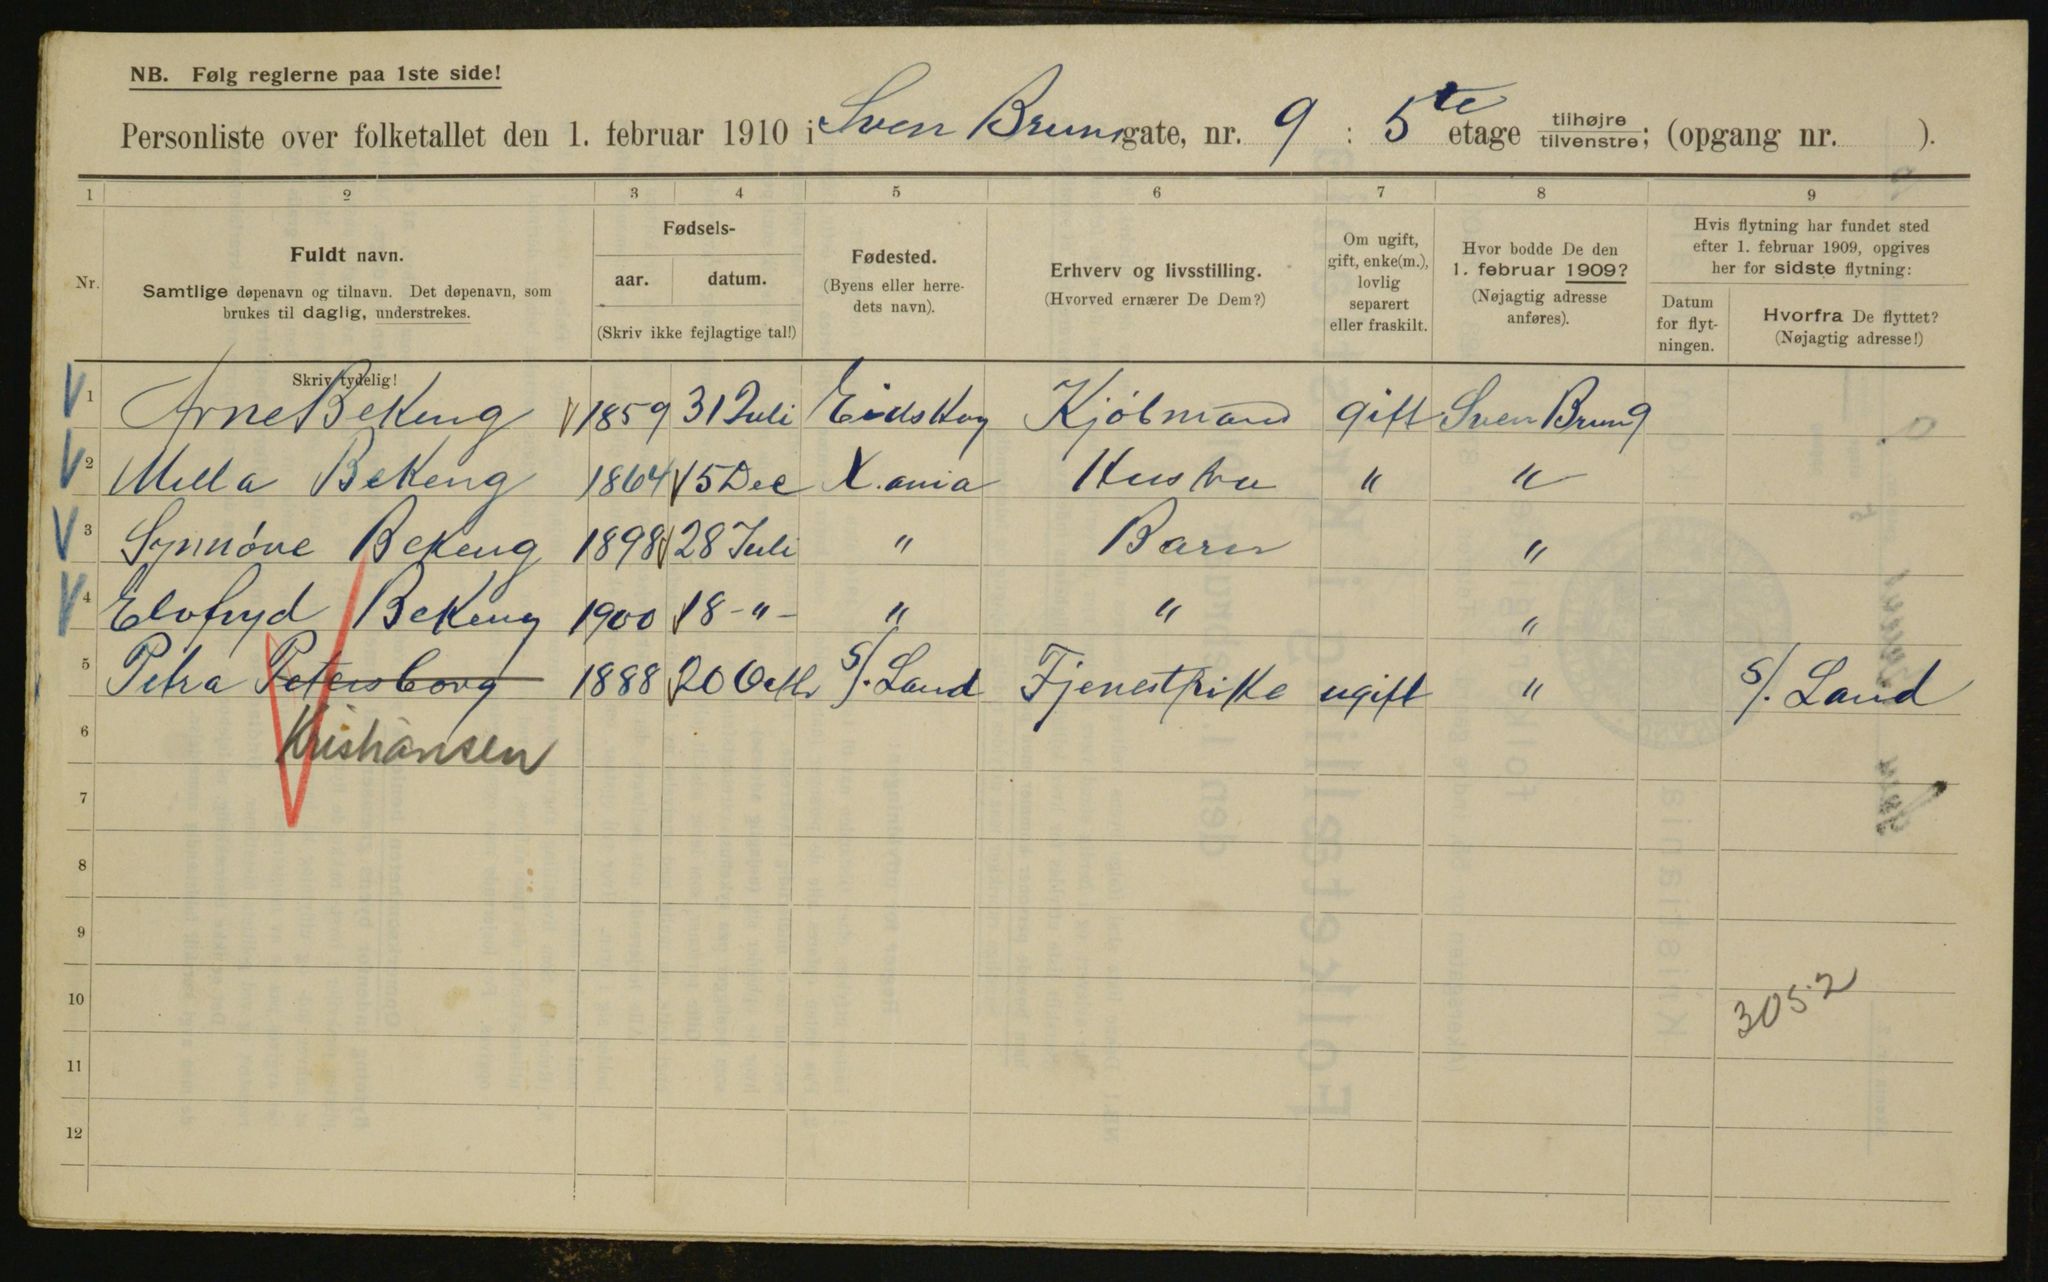 NB. Følg reglerne paa 1ste side!
Personliste over folketallet den 1. februar 1910 i Sven Brunsgate, nr. 9 : 5te etage tilhøjre tilvenstre; (opgang nr. ).
1 2 3 4 5 6 7 8 9
Nr.
Fuldt navn.
Samtlige døpenavn og tilnavn. Det døpenavn, som
brukes til daglig, understrekes.
Fødsels-
aar. datum.
(Skriv ikke fejlagtige tal!)
Fødested.
(Byens eller herre-
dets navn).
Erhverv og livsstilling.
(Hvorved ernærer De Dem?)
Om ugift,
gift, enke(m.),
lovlig
separert
eller fraskilt.
Hvor bodde De den
1. februar 1909?
(Nøjagtig adresse
anføres).
Hvis flytning har fundet sted
efter 1. februar 1909, opgives
her for sidste flytning:
Datum
for flyt-
ningen.
Hvorfra De flyttet?
(Nøjagtig adresse!)
Skriv tydelig!
1 Arne Bekeng 1859 31 Juli Eidskog Kjøbmand gift Sven Brun 9
2 Milla Bekeng 1864 15 Dec X.ania Hustru " "
3 Synnöve Bekeng 1898 28 Juli " Barn "
4 Elvfryd Bekeng 1900 18 -"- " " "
5 Petra Petersborg 1888 20 Octbr S/. Land Tjenestpike ugift " S/. Land
6 Kristiansen
7
8
9
10
3052
11
12